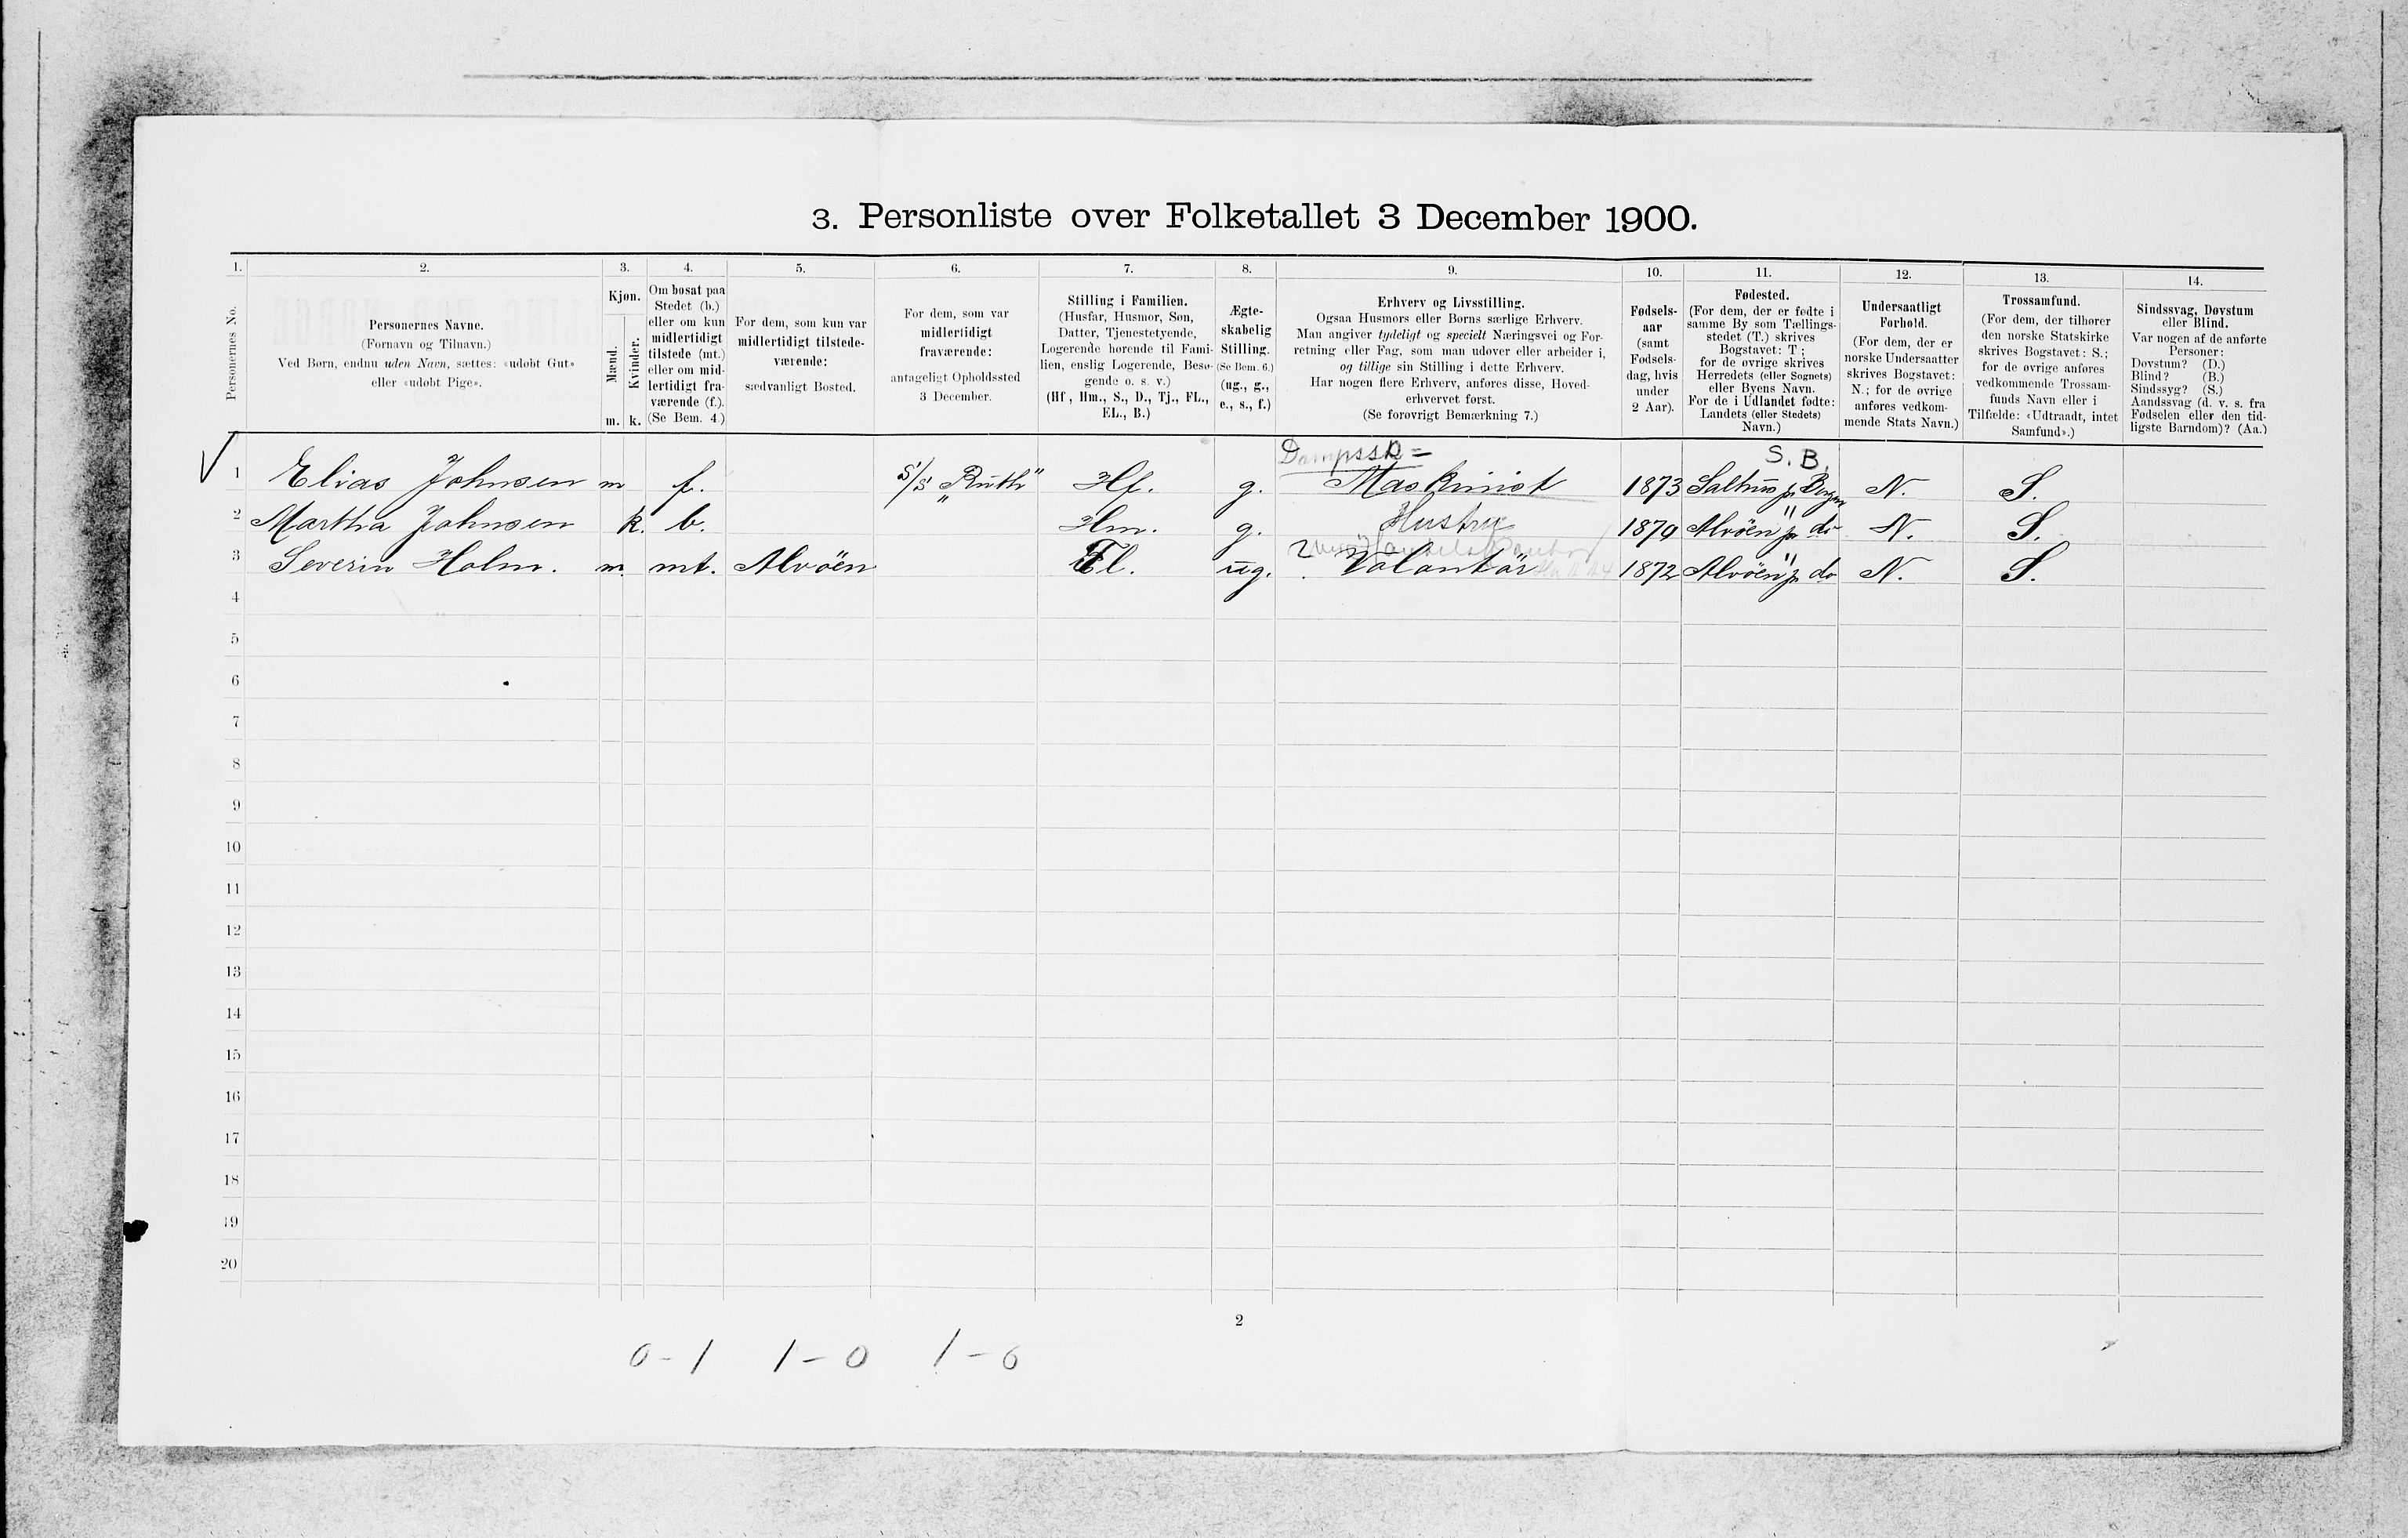 3. Personliste over Folketallet 3 December 1900.
1. 2. 3. 4. 5. 6. 7. 8. 9. 10. 11. 12. 13. 14.
Personernes No.
Personernes Navne.
(Fornavn og Tilnavn.)
Ved Børn, endnu uden Navn, sættes: «udøbt Gut»
eller «udøbt Pige».
Kjøn.
Mænd.
Kvinder.
m. k.
Om bosat paa
Stedet (b.)
eller om kun
midlertidigt
tilstede (mt.)
eller om mid-
lertidigt fra-
værende (f.).
(Se Bem. 4.)
For dem, som kun var
midlertidigt tilstede-
værende:
sædvanligt Bosted.
For dem, som var
midlertidigt
fraværende:
antageligt Opholdssted
3 December.
Stilling i Familien.
(Husfar, Husmor, Søn,
Datter, Tjenestetyende,
Logerende hørende til Fami-
lien, enslig Logerende, Besø-
gende o. s. v.)
(Hf., Hm., S., D., Tj., FL.,
EL., B.)
Ægte-
skabelig
Stilling.
(Se Bem. 6.)
(ug., g.,
e., s., f.)
Erhverv og Livsstilling.
Ogsaa Husmors eller Børns særlige Erhverv.
Man angiver tydeligt og specielt Næringsvei og For-
retning eller Fag, som man udøver eller arbeider i,
og tillige sin Stilling i dette Erhverv.
Har nogen flere Erhverv, anføres disse, Hoved-
erhvervet først.
(Se forøvrigt Bemærkning 7.)
Fødsels-
aar
(samt
Fødsels-
dag, hvis
under
2 Aar).
Fødested.
(For dem, der er fødte i
samme By som Tællings-
stedet (T.) skrives
Bogstavet: T;
for de øvrige skrives
Herredets (eller Sognets)
eller Byens Navn.
For de i Udlandet fødte:
Landets (eller Stedets)
Navn.)
Undersaatligt
Forhold.
(For dem, der er
norske Undersaatter
skrives Bogstavet:
N.; for de øvrige
anføres vedkom-
mende Stats Navn.)
Trossamfund.
(For dem, der tilhører
den norske Statskirke
skrives Bogstavet: S.;
for de øvrige anføres
vedkommende Trossam-
funds Navn eller i
Tilfælde: «Udtraadt, intet
Samfund».)
Sindssvag, Døvstum
eller Blind.
Var nogen af de anførte
Personer:
Døvstum? (D.)
Blind? (B.)
Sindssyg? (S.)
Aandssvag (d. v. s. fra
Fødselen eller den tid-
ligste Barndom)? (Aa.)
Dampssk= S. B.
1 Elias Johnsen m f. S/S „Ruth" Hf. g. Maskinist 1873 Salhus pr Bergen N. S.
2 Martha Johnsen k. b. Hm. g. Hustru 1879 Alvöen " pr do N. S.
3 Severin Holm. m. mt. Alvöen Fl. ug. Volontör 1872 Alvöen " pr do N. S.
4
5
6
7
8
9
10
11
12
13
14
15
16
17
18
19
20
2
0-1 1-0 1-0